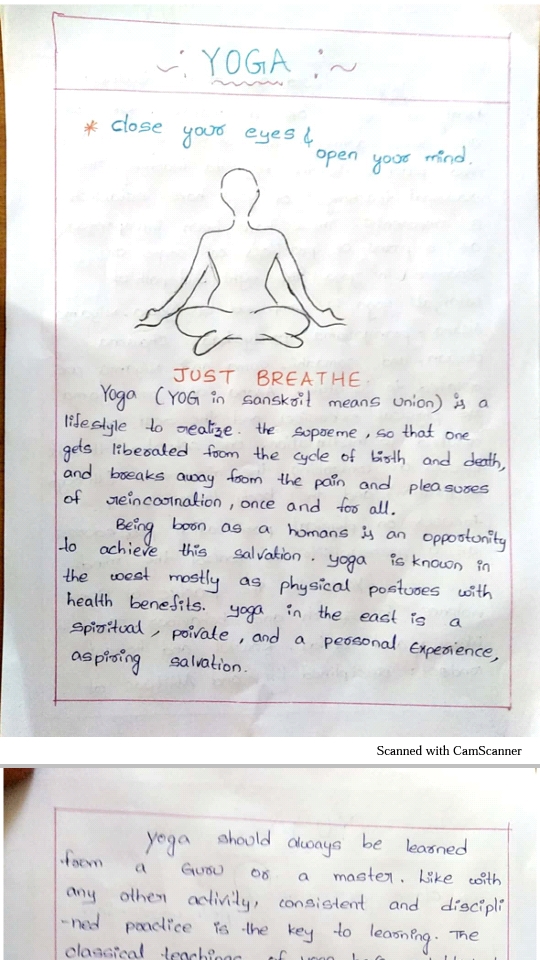 YOGA
* close your eyes &
open your mind.
JUST BREATHE
Yoga (YOG in sanskrit means union) is a
lifestyle to realize. the supreme, so that one
gets liberated from the cycle of birth and death,
and breaks away from the pain and pleasures
of reincarnation, once and for all.
Being born as a humans is an opportunity
to achieve this salvation. yoga is known in
the west mostly as physical postures with
health benefits. yoga in the east is a
spiritual, private, and a personal Experience,
aspiring salvation.
Scanned with CamScanner
Yoga should always be learned
from a Guru or a master. Like with
any other activity, consistent and discipli
-ned practice is the key to learning. The
classical teachings of yoga